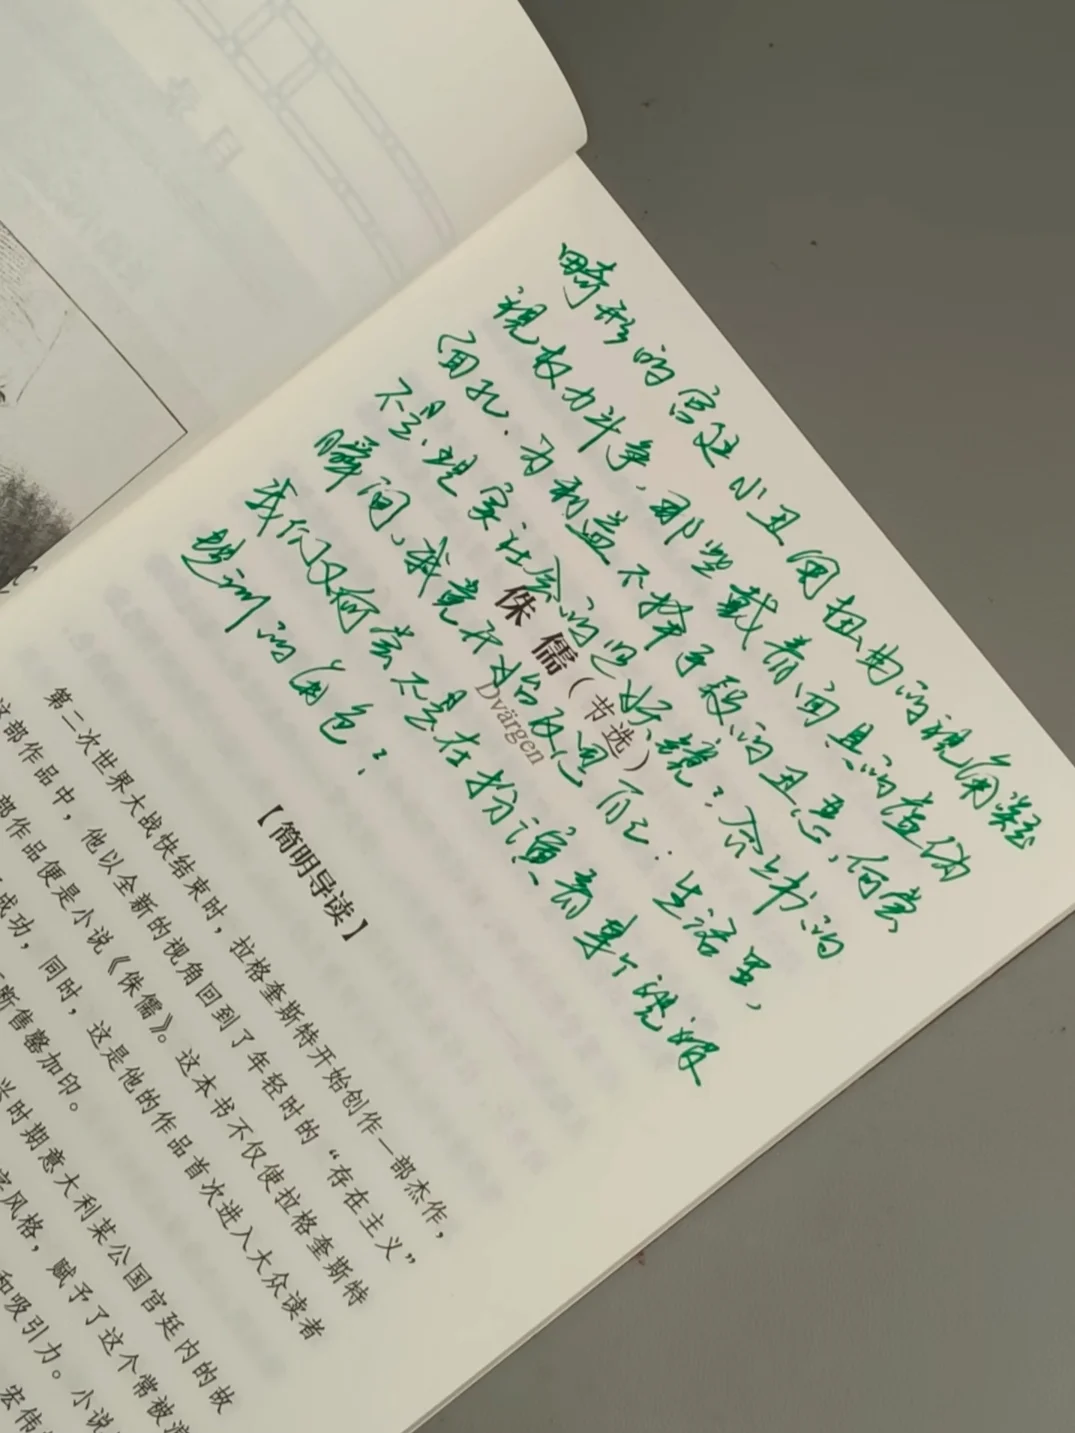 畸形的宫廷小丑用扭曲的视角凝
视权力斗争，那些戴着面具的虚伪
面孔，为利益不择手段的丑恶，何尝
不是现实社会的照妖镜？合上书的
瞬间，我竟开始反思自己：生活里，
我们又何尝不是在扮演着某个滑稽
的角色？
侏儒（节选）
Dvärgen
【简明导读】
第二次世界大战快结束时，拉格奎斯特开始创作一部杰作，
这部作品中，他以全新的视角回到了年轻时的“存在主义”
部作品便是小说《侏儒》。这本书不仅使拉格奎斯特
成功，同时，这是他的作品首次进入大众读者
断售罄加印。
兴时期意大利某公国宫廷内的故
风格，赋予了这个常被
和吸引力。小说
宏伟